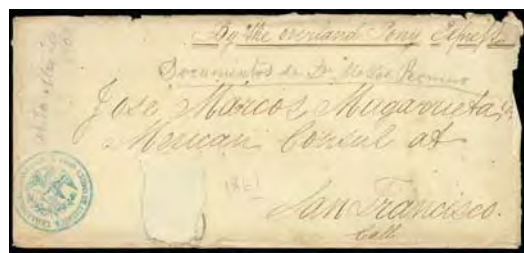 By the overland Pony Express
Documentos de Dn Matias Romero
Jose Marcos Mugarrieta,
Mexican Consul at
1861
San Francisco.
Call